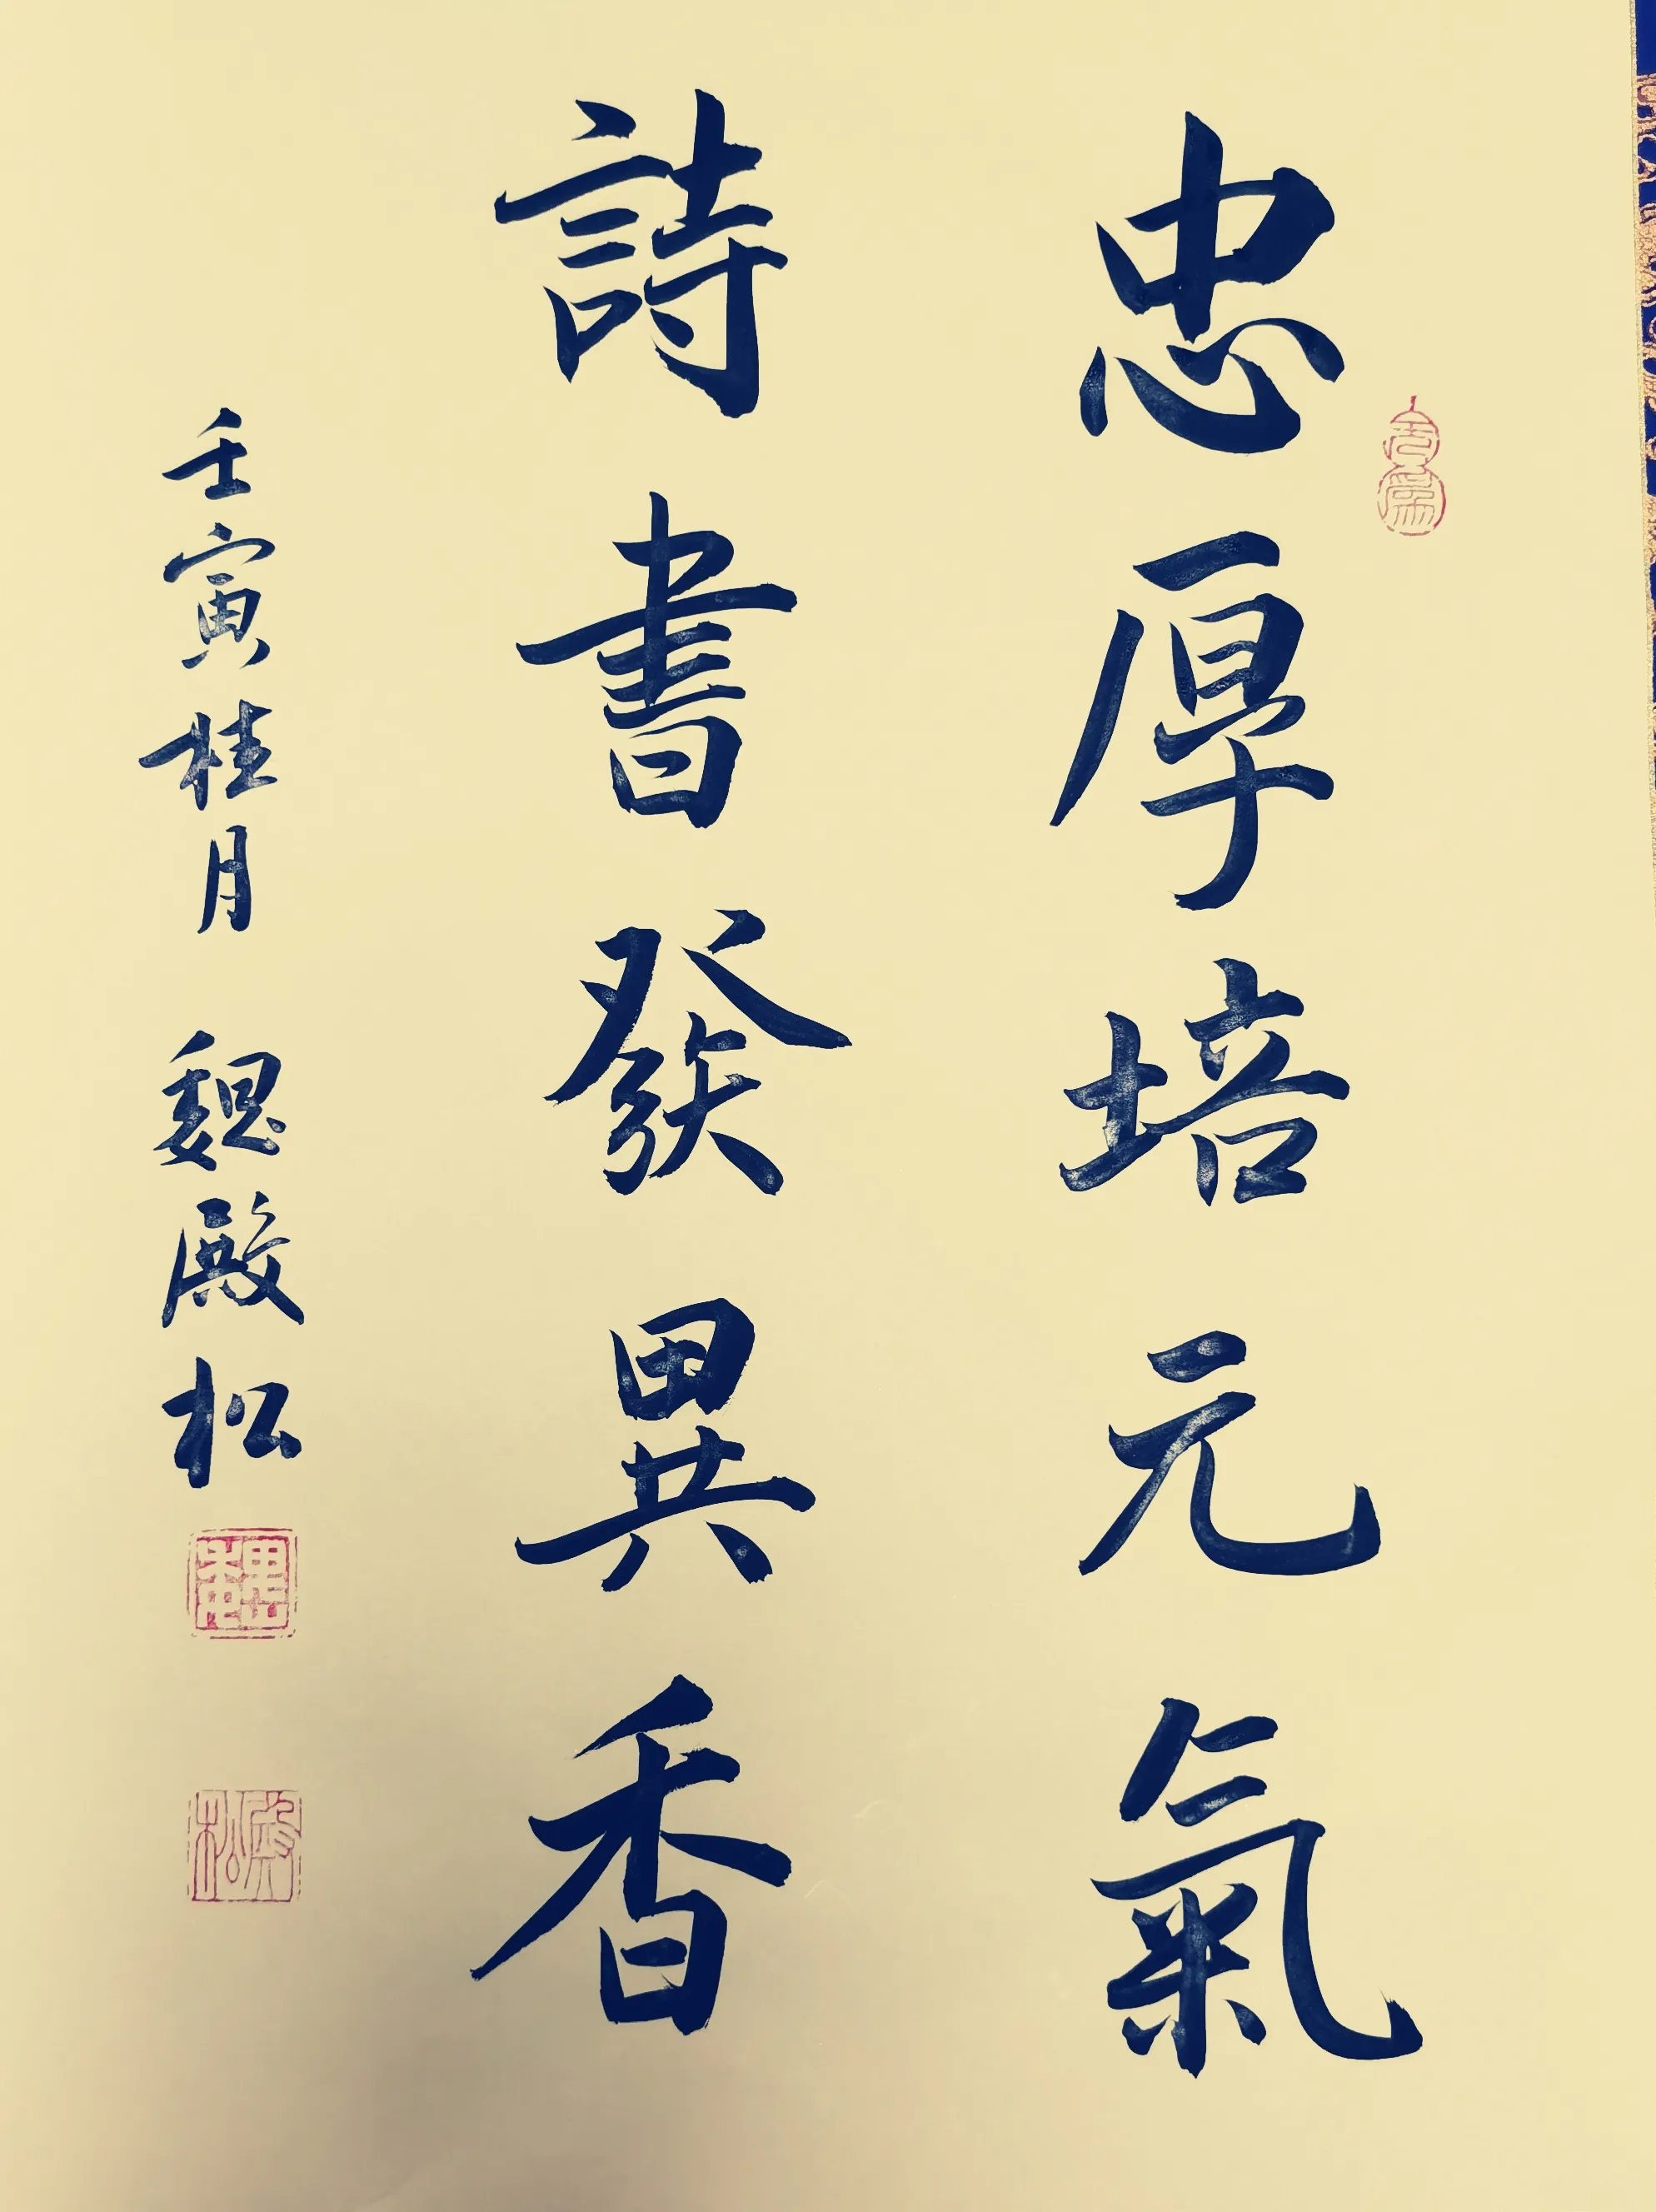 忠厚培元氣
詩書發異香
壬寅桂月 魏殿松
魏
殿松